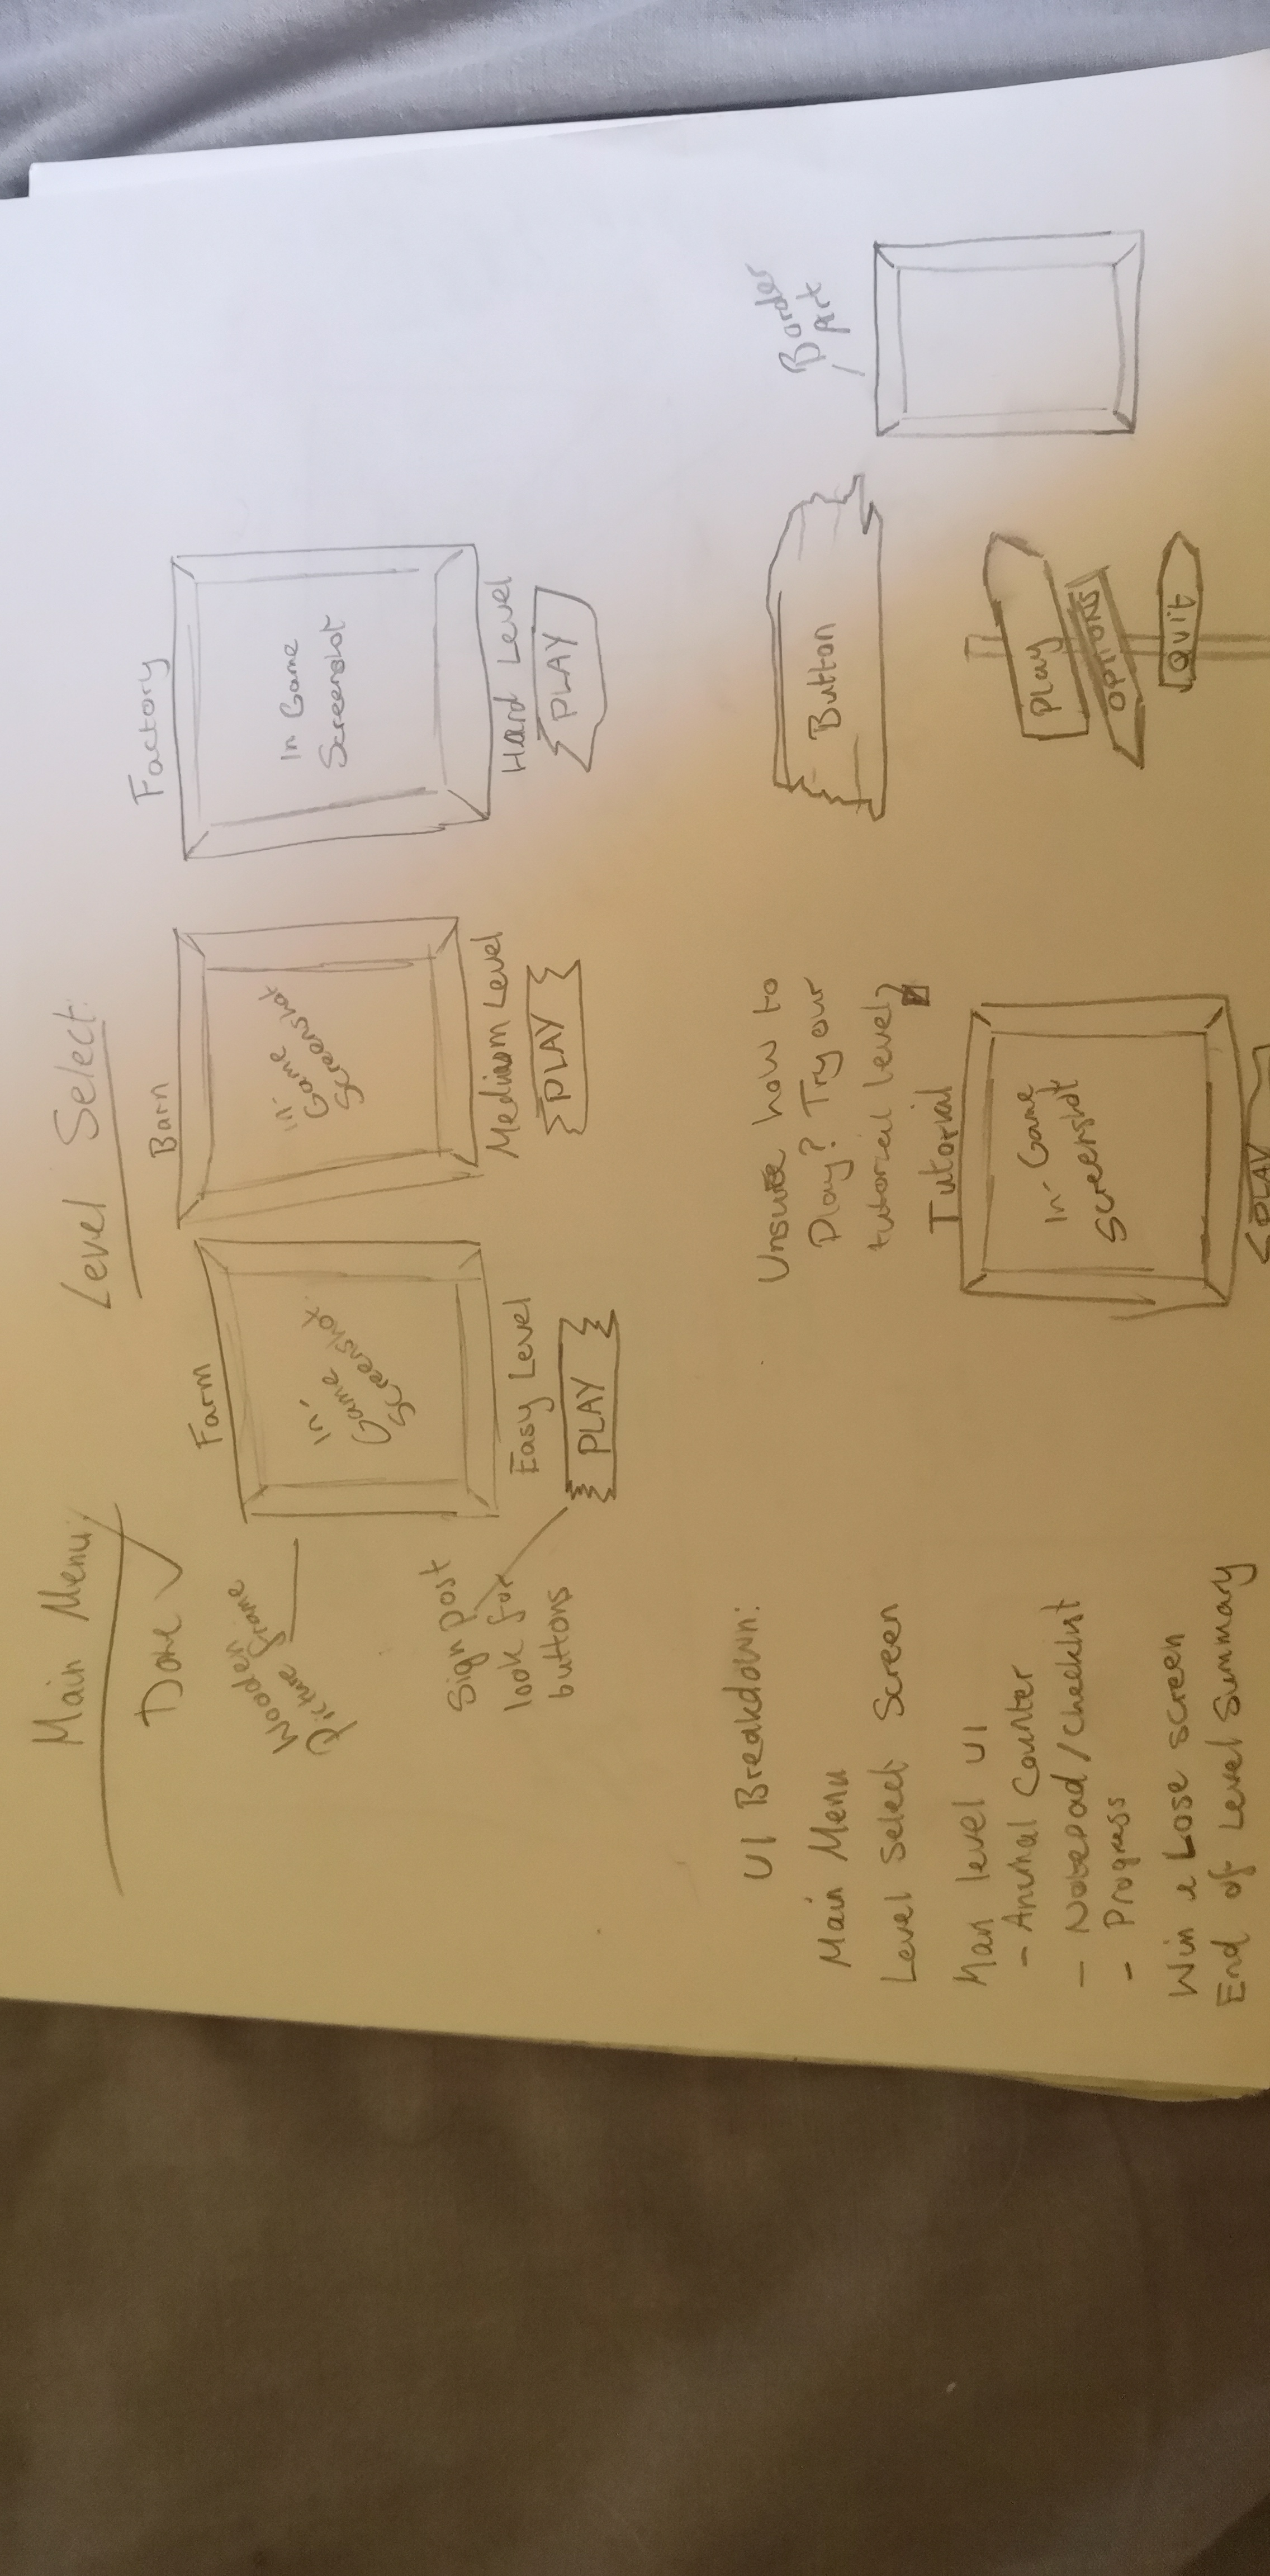 Main Menu
Done
Level Select:
Wooden
Picture frame
Farm
In-
Game
Screenshot
Easy Level
PLAY
Sign post
look for
buttons
Barn
In-
Game
Screenshot
Medium Level
PLAY
Factory
In Game
Screenshot
Hard Level
PLAY
UI Breakdown:
Main Menu
Level Select Screen
Main level UI
- Animal Counter
- Notepad/Checklist
- Progress
Win & Lose Screen
End of Level Summary
Unsure how to
Play? Try our
tutorial level
Tutorial
In-Game
Screenshot
PLAY
Button
Play
OPTIONS
Quit
Border
Art